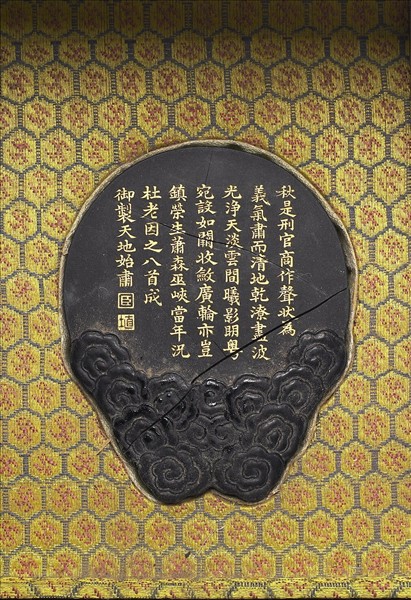 秋是刑官商作聲狀為
義氣肅而清地乾潦盡波
光淨天淡雲間曦影明粵
宛該如關收斂廣輪亦豈
鎮榮生蕭森巫峽當年況
杜老因之八首成
御製天地始肅 臣